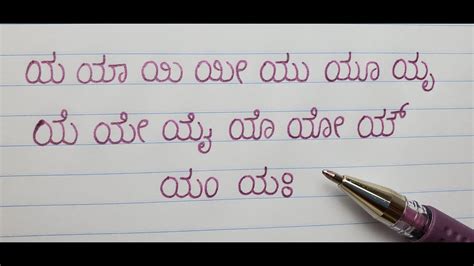 ಯ ಯಾ ಯಿ ಯೀ ಯು ಯೂ ಯೃ
ಯೆ ಯೇ ಯೈ ಯೊ ಯೋ ಯ್
ಯಂ ಯಃ